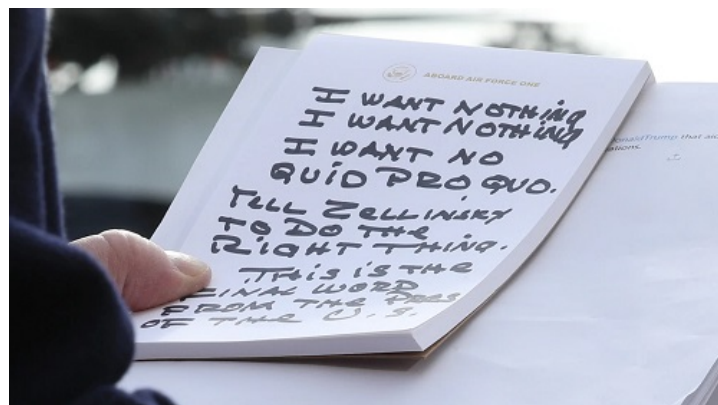 ABOARD AIR FORCE ONE
I WANT NOTHING
I WANT NOTHING
I WANT NO
QUID PRO QUO.
TELL ZELLINSKY
TO DO THE
RIGHT THING.
THIS IS THE
FINAL WORD
FROM THE PRES
OF THE U.S.
onaldTrump that
ations.